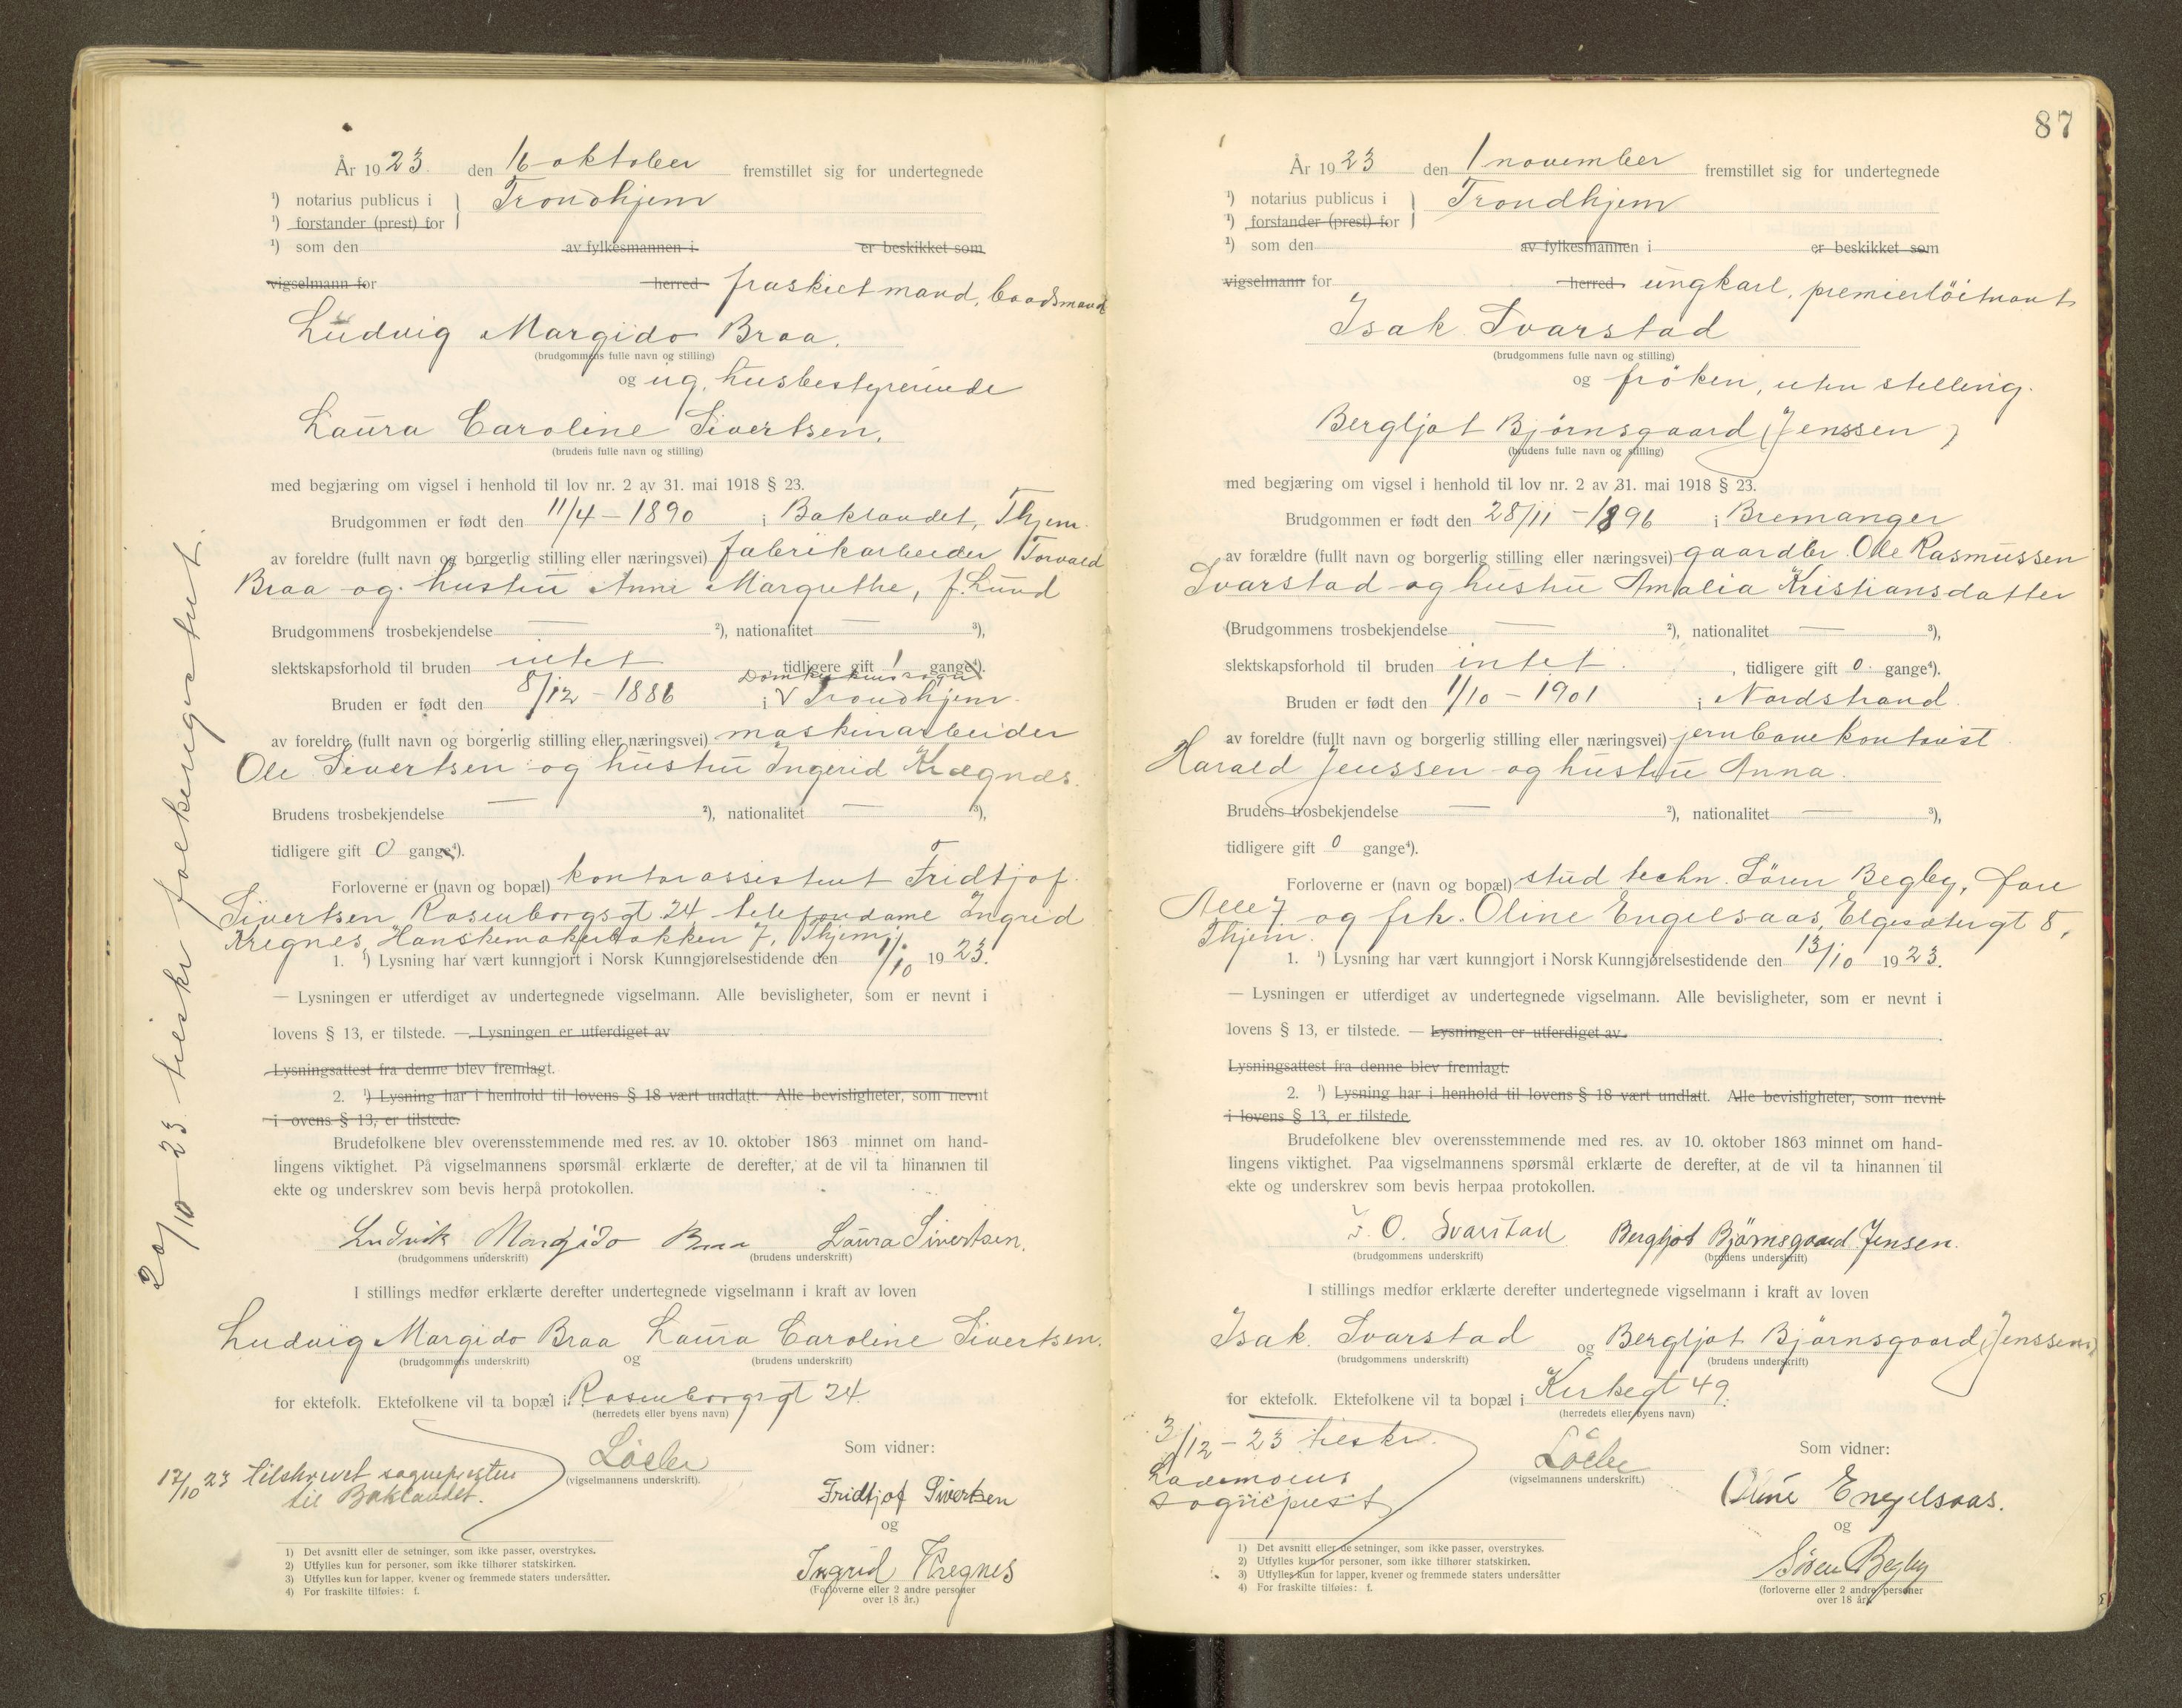 År 1923. den 16 oktober fremstillet sig for undertegnede
¹) notarius publicus i } Trondhjem
¹) forstander (prest) for
¹) som den av fylkesmannen i er beskikket som
vigselmann for herred fraskilt mand, baadsmand
Ludvig Margido Braa.
(brudgommens fulle navn og stilling)
og ug. husbestyrerinde
Laura Caroline Sivertsen.
(brudens fulle navn og stilling)
med begjæring om vigsel i henhold til lov nr. 2 av 31. mai 1918 § 23.
Brudgommen er født den 11/4 - 1890 i Baklandet, Thjem.
av foreldre (fullt navn og borgerlig stilling eller næringsvei) fabrikarbeider Torvald
Braa og hustru Anne Margrethe, f. Lund
Brudgommens trosbekjendelse — ²), nationalitet — ³),
slektskapsforhold til bruden intet, tidligere gift 1 gange⁴).
Domkirkens sogn
Bruden er født den 8/12 - 1886 i V Trondhjem.
av foreldre (fullt navn og borgerlig stilling eller næringsvei) maskinarbeider
Ole Sivertsen og hustru Ingerid Krægnæs.
Brudens trosbekjendelse — ²), nationalitet — ³),
tidligere gift 0 gange⁴).
Forloverne er (navn og bopæl) kontorassistent Fridtjof
Sivertsen Rosenborgsgt 24 telefondame Ingrid
Kregnes, Hanskemakerbakken 7, Thjem.
1. ¹) Lysning har vært kunngjort i Norsk Kunngjørelsestidende den 1/10 1923.
— Lysningen er utferdiget av undertegnede vigselmann. Alle bevisligheter, som er nevnt i
lovens § 13, er tilstede. — Lysningen er utferdiget av
Lysningsattest fra denne blev fremlagt.
2. ¹) Lysning har i henhold til lovens § 18 vært undlatt. Alle bevisligheter, som nevnt
i ovens § 13, er tilstede.
Brudefolkene blev overensstemmende med res. av 10. oktober 1863 minnet om hand-
lingens viktighet. På vigselmannens spørsmål erklærte de derefter, at de vil ta hinannen til
ekte og underskrev som bevis herpå protokollen.
Ludvik Margido Braa Laura Sivertsen.
(brudgommens underskrift) (brudens underskrift)
I stillings medfør erklærte derefter undertegnede vigselmann i kraft av loven
Ludvig Margido Braa Laura Caroline Sivertsen.
(brudgommens underskrift) og (brudens underskrift)
for ektefolk. Ektefolkene vil ta bopæl i Rosenborgsgt 24.
(herredets eller byens navn)
Som vidner:
(vigselmannens underskrift).
17/10 23 tilskrevet sognepresten
til Baklandet.
Fridtjof Sivertsen
og
Ingrid Kregnes
(Forloverne eller 2 andre personer
over 18 år.)
1) Det avsnitt eller de setninger, som ikke passer, overstrykes.
2) Utfylles kun for personer, som ikke tilhører statskirken.
3) Utfylles kun for lapper, kvener og fremmede staters undersåtter.
4) For fraskilte tilføies: f.
20/10 - 23 tilskr
87
År 1923 den 1 november fremstillet sig for undertegnede
¹) notarius publicus i } Trondhjem
¹) forstander (prest) for
¹) som den av fylkesmannen i er beskikket som
vigselmann for herred ungkarl, premierløitnant
Isak Svarstad
(brudgommens fulle navn og stilling)
og frøken, uten stilling.
Bergljot Bjørnsgaard (Jenssen)
(brudens fulle navn og stilling)
med begjæring om vigsel i henhold til lov nr. 2 av 31. mai 1918 § 23.
Brudgommen er født den 28/11 - 1896 i Bremanger
av forældre (fullt navn og borgerlig stilling eller næringsvei) gaardbr. Ole Rasmussen
Svarstad og hustru Amalia Kristiansdatter
(Brudgommens trosbekjendelse — ²), nationalitet — ³),
slektskapsforhold til bruden intet., tidligere gift 0 gange⁴).
Bruden er født den 1/10 - 1901 i Nordstrand.
av foreldre (fullt navn og borgerlig stilling eller næringsvei) jernbanekontorist
Harald Jenssen og hustru Anna.
Brudens trosbekjendelse — ²), nationalitet — ³),
tidligere gift 0 gange⁴).
Forloverne er (navn og bopæl) stud techn. Søren Begby,
Alle 7 og frk. Oline Engelsaas, Elgesætergt 8,
Thjem.
1. ¹) Lysning har vært kunngjort i Norsk Kunngjørelsestidende den 13/10 1923.
— Lysningen er utferdiget av undertegnede vigselmann. Alle bevisligheter, som er nevnt i
lovens § 13, er tilstede. — Lysningen er utferdiget av
Lysningsattest fra denne blev fremlagt.
2. ¹) Lysning har i henhold til lovens § 18 vært undlatt. Alle bevisligheter, som nevnt
i lovens § 13, er tilstede.
Brudefolkene blev overensstemmende med res. av 10. oktober 1863 minnet om hand-
lingens viktighet. Paa vigselmannens spørsmål erklærte de derefter, at de vil ta hinannen til
ekte og underskrev som bevis herpaa protokollen.
I. O. Svarstad Bergljot Bjørnsgaard Jensen.
(brudgommens underskrift) (brudens underskrift)
I stillings medfør erklærte derefter undertegnede vigselmann i kraft av loven
Isak Svarstad og Bergljot Bjørnsgaard (Jenssen)
(brudgommens underskrift) (brudens underskrift)
for ektefolk. Ektefolkene vil ta bopæl i Kirkegt 49.
(herredets eller byens navn)
3/12 - 23 tilskr.
Lademoens
sogneprest
Som vidner:
(vigselmannens underskrift.)
Oline Engelsaas.
og
Søren Begby
(forloverne eller 2 andre personer
over 18 år).
1) Det avsnitt eller de setninger, som ikke passer, overstrykes.
2) Utfylles kun for personer, som ikke tilhører statskirken.
3) Utfylles kun for lapper, kvener og fremmede staters undersåtter
4) For fraskilte tilføies: f.